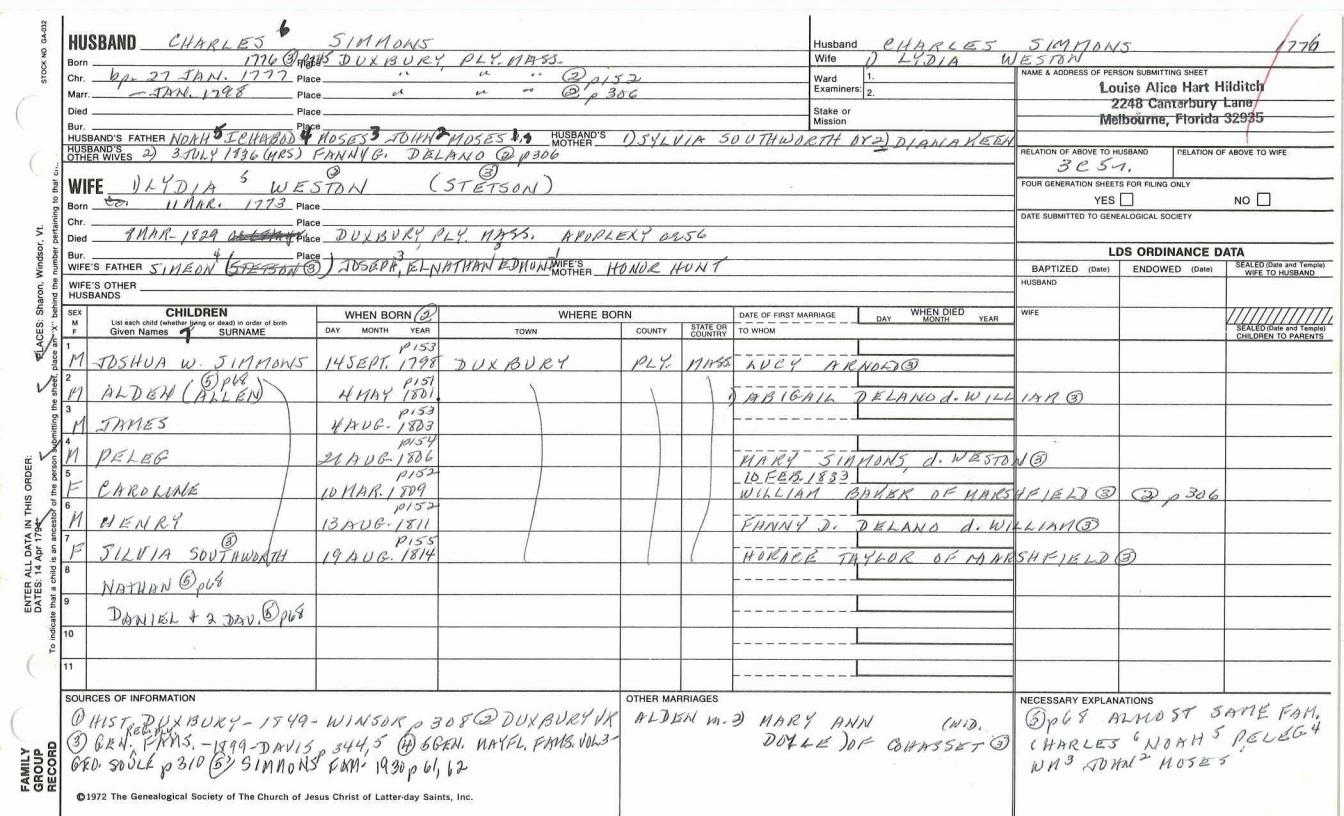 STOCK NO. GA-032
HUSBAND CHARLES 6 SIMMONS
Born 1776 ③ p 345 Place DUXBURY, PLY. MASS.
Chr. bp. 27 JAN. 1777 Place " " " ② p152
Marr. - JAN. 1798 Place " " " ② p 306
Died Place
Bur. Place
HUSBAND'S FATHER NOAH 5 ICHABOD 4 MOSES 3 JOHN 2 MOSES 1 HUSBAND'S MOTHER 1) SYLVIA SOUTHWORTH OR 2) DIANA KEEN
HUSBAND'S OTHER WIVES 2) 3 JULY 1836 (MRS) FANNY G. DELANO ② p306
Husband CHARLES SIMMONS 1776
Wife 1) LYDIA WESTON
Ward Examiners: 1. 2.
Stake or Mission
NAME & ADDRESS OF PERSON SUBMITTING SHEET
Louise Alice Hart Hilditch
2248 Canterbury Lane
Melbourne, Florida 32935
RELATION OF ABOVE TO HUSBAND RELATION OF ABOVE TO WIFE
3C5r.
FOUR GENERATION SHEETS FOR FILING ONLY
YES NO
DATE SUBMITTED TO GENEALOGICAL SOCIETY
WIFE 1) LYDIA 5 WESTON ② (STETSON) ③
Born 11 MAR. 1773 Place
Chr. Place
Died 8 MAR - 1829 Place DUXBURY, PLY. MASS. APOPLEXY @56
Bur. Place
WIFE'S FATHER SIMEON 4 (STETSON ③) JOSEPH 3, ELNATHAN EDMUND 1 WIFE'S MOTHER HONOR HUNT
WIFE'S OTHER HUSBANDS
LDS ORDINANCE DATA
BAPTIZED (Date) ENDOWED (Date) SEALED (Date and Temple) WIFE TO HUSBAND
HUSBAND
WIFE
SEALED (Date and Temple) CHILDREN TO PARENTS
SEX M F CHILDREN WHEN BORN ② WHERE BORN DATE OF FIRST MARRIAGE WHEN DIED
List each child (whether living or dead) in order of birth
Given Names 7 SURNAME DAY MONTH YEAR TOWN COUNTY STATE OR COUNTRY TO WHOM DAY MONTH YEAR
1 M JOSHUA W. SIMMONS 14 SEPT. 1798 p153 DUXBURY PLY. MASS LUCY ARNOLD ③
2 M ALDEN (ALLEN) ⑤ p68 4 MAY 1801 p151 1) ABIGAIL DELANO d. WILLIAM ③
3 M JAMES 4 AUG. 1803 p153
4 M PELEG 21 AUG. 1806 p154 MARY SIMMONS, d. WESTON ③
5 F CAROLINE 10 MAR. 1809 p152 10 FEB. 1833 WILLIAM BAKER OF MARSHFIELD ③ ② p 306
6 M HENRY 13 AUG. 1811 p152 FANNY D. DELANO d. WILLIAM ③
7 F SILVIA SOUTHWORTH ③ 19 AUG. 1814 p155 HORACE TAYLOR OF MARSHFIELD ③
8 NATHAN ⑤ p68
9 DANIEL + 2 DAU. ⑤ p68
10
11
SOURCES OF INFORMATION
① HIST. DUXBURY - 1849 - WINSOR p 308 ② DUXBURY VR
③ GEN. FAMS. - 1899 - DAVIS p 344,5 ④ 5 GEN. MAYFL. FAMS. VOL 3 -
GEO. SOULE p 310 ⑤ SIMMONS FAM. 1930 p 61, 62
OTHER MARRIAGES
ALDEN m. 2) MARY ANN (WID.
DOYLE) OF COHASSET ③
NECESSARY EXPLANATIONS
⑤ p68 ALMOST SAME FAM.
CHARLES 6 NOAH 5 PELEG 4
WM 3 JOHN 2 MOSES 1
©1972 The Genealogical Society of The Church of Jesus Christ of Latter-day Saints, Inc.
FAMILY GROUP RECORD
ENTER ALL DATA IN THIS ORDER:
DATES: 14 Apr 1794
PLACES: Sharon, Windsor, Vt.
To indicate that a child is an ancestor of the person submitting the sheet, place an "X" behind the number pertaining to that c